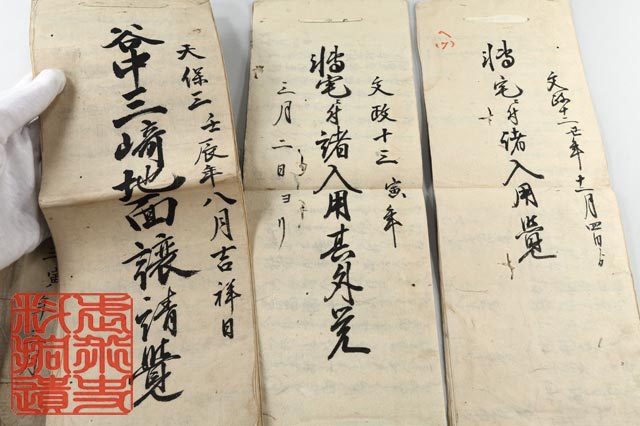 文政十二丑年十一月四日ゟ
轉宅并諸入用覺
文政十三寅年
轉宅并諸入用其外覚
三月二日ヨリ
天保三壬辰年八月吉祥日
谷中三﨑地面讓請覺